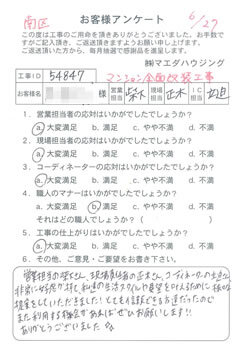 南区
お客様アンケート
6/27
この度は工事のご用命を頂きありがとうございました。お手数で
すがご記入頂き、ご返送頂きますようお願い申し上げます。
ご返送頂いた方から、毎月抽選で感謝品を進呈します。
㈱マエダハウジング
工事ID 54847 マンション全面改装工事
お客様名 様 営業担当 柴木 現場担当 正木 IC担当
1．営業担当者の応対はいかがでしたでしょうか？
a．大変満足 b．満足 c．やや不満 d．不満
2．現場担当者の応対はいかがでしたでしょうか？
a．大変満足 b．満足 c．やや不満 d．不満
3．コーディネーターの応対はいかがでしたでしょうか？
a．大変満足 b．満足 c．やや不満 d．不満
4．職人のマナーはいかがでしたでしょうか？
a．大変満足 b．満足 c．やや不満 d．不満
それはどの職人でしょうか？（ ）
5．工事の仕上がりはいかがでしたでしょうか？
a．大変満足 b．満足 c．やや不満 d．不満
6．その他、ご意見・ご要望をお書き下さい。
営業担当の柴木さん、現場責任者の正木さん、コーディネーターの
非常に好感が持て、私達の生活スタイルや要望をかなえるために様々な
提案をしていただきました！とても信頼できる方達だったので
また利用する機会があればぜひお願いします!!
ありがとうございました